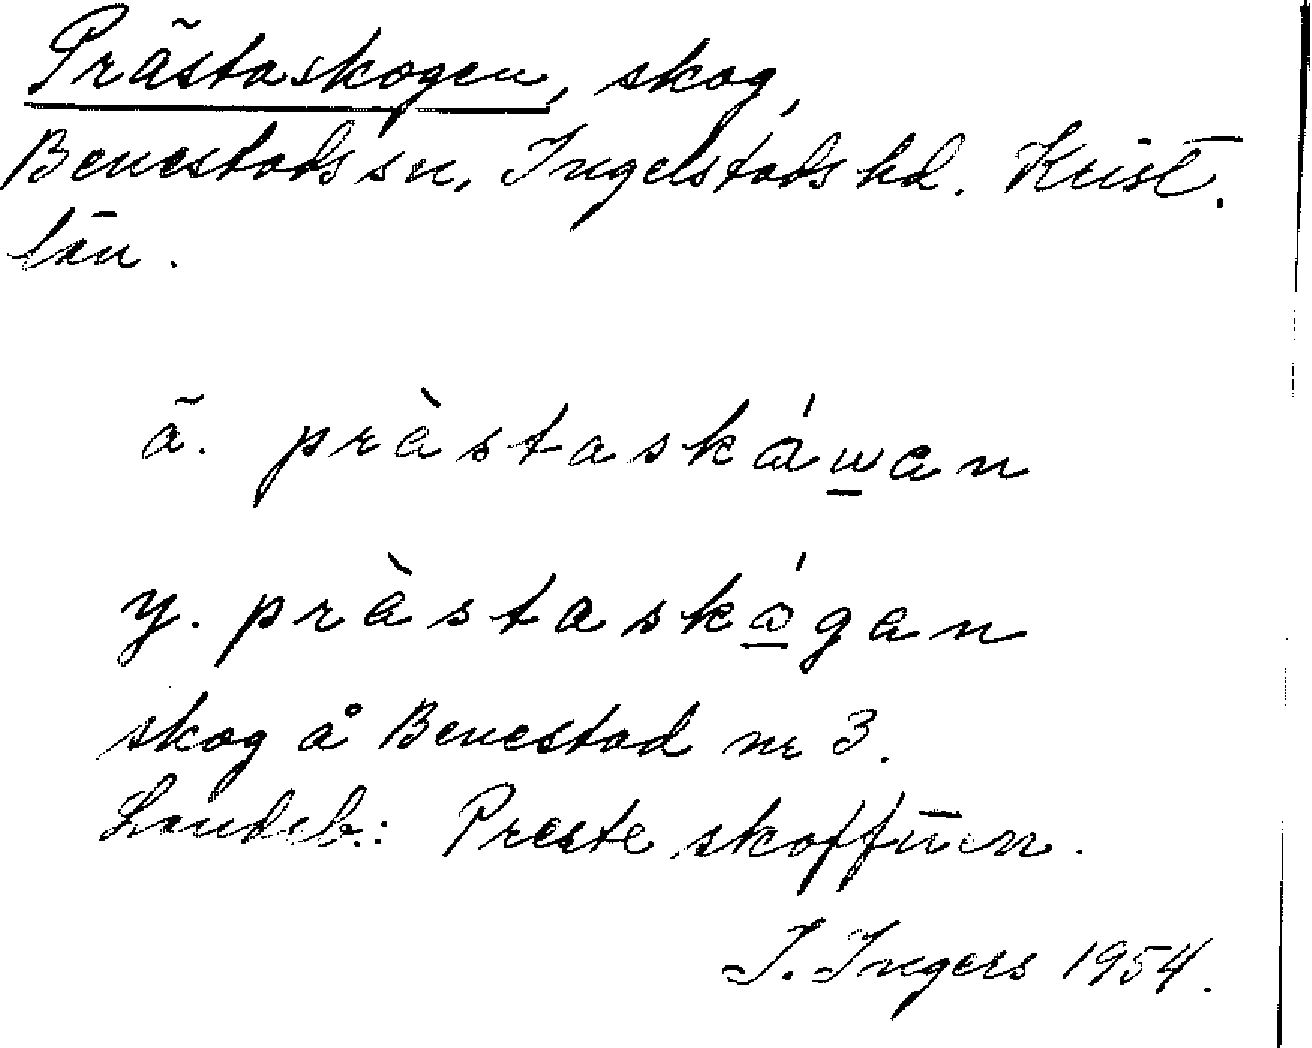 Prästaskogen, skog,
Benestads sn, Ingelstads hd. Krist.
län.
ä. prὰstaskáwan
y. prὰstaskógan
skog å Benestad nr 3.
Landeb.: Preste skoffuen.
I. Ingers 1954.